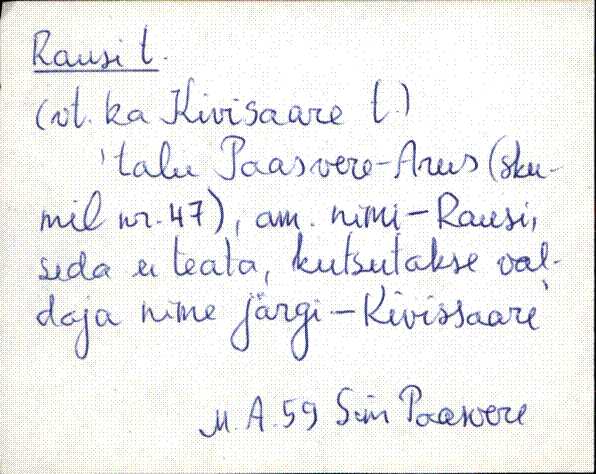 Rausi t.
(vt. ka Kivisaare t.)
'talu Paasvere-Arus (sku-
mil nr. 47), am. nimi – Rausi,
seda ei teata, kutsutakse val-
daja nime järgi – Kivissaare'
M. A. 59 Sim Paasvere